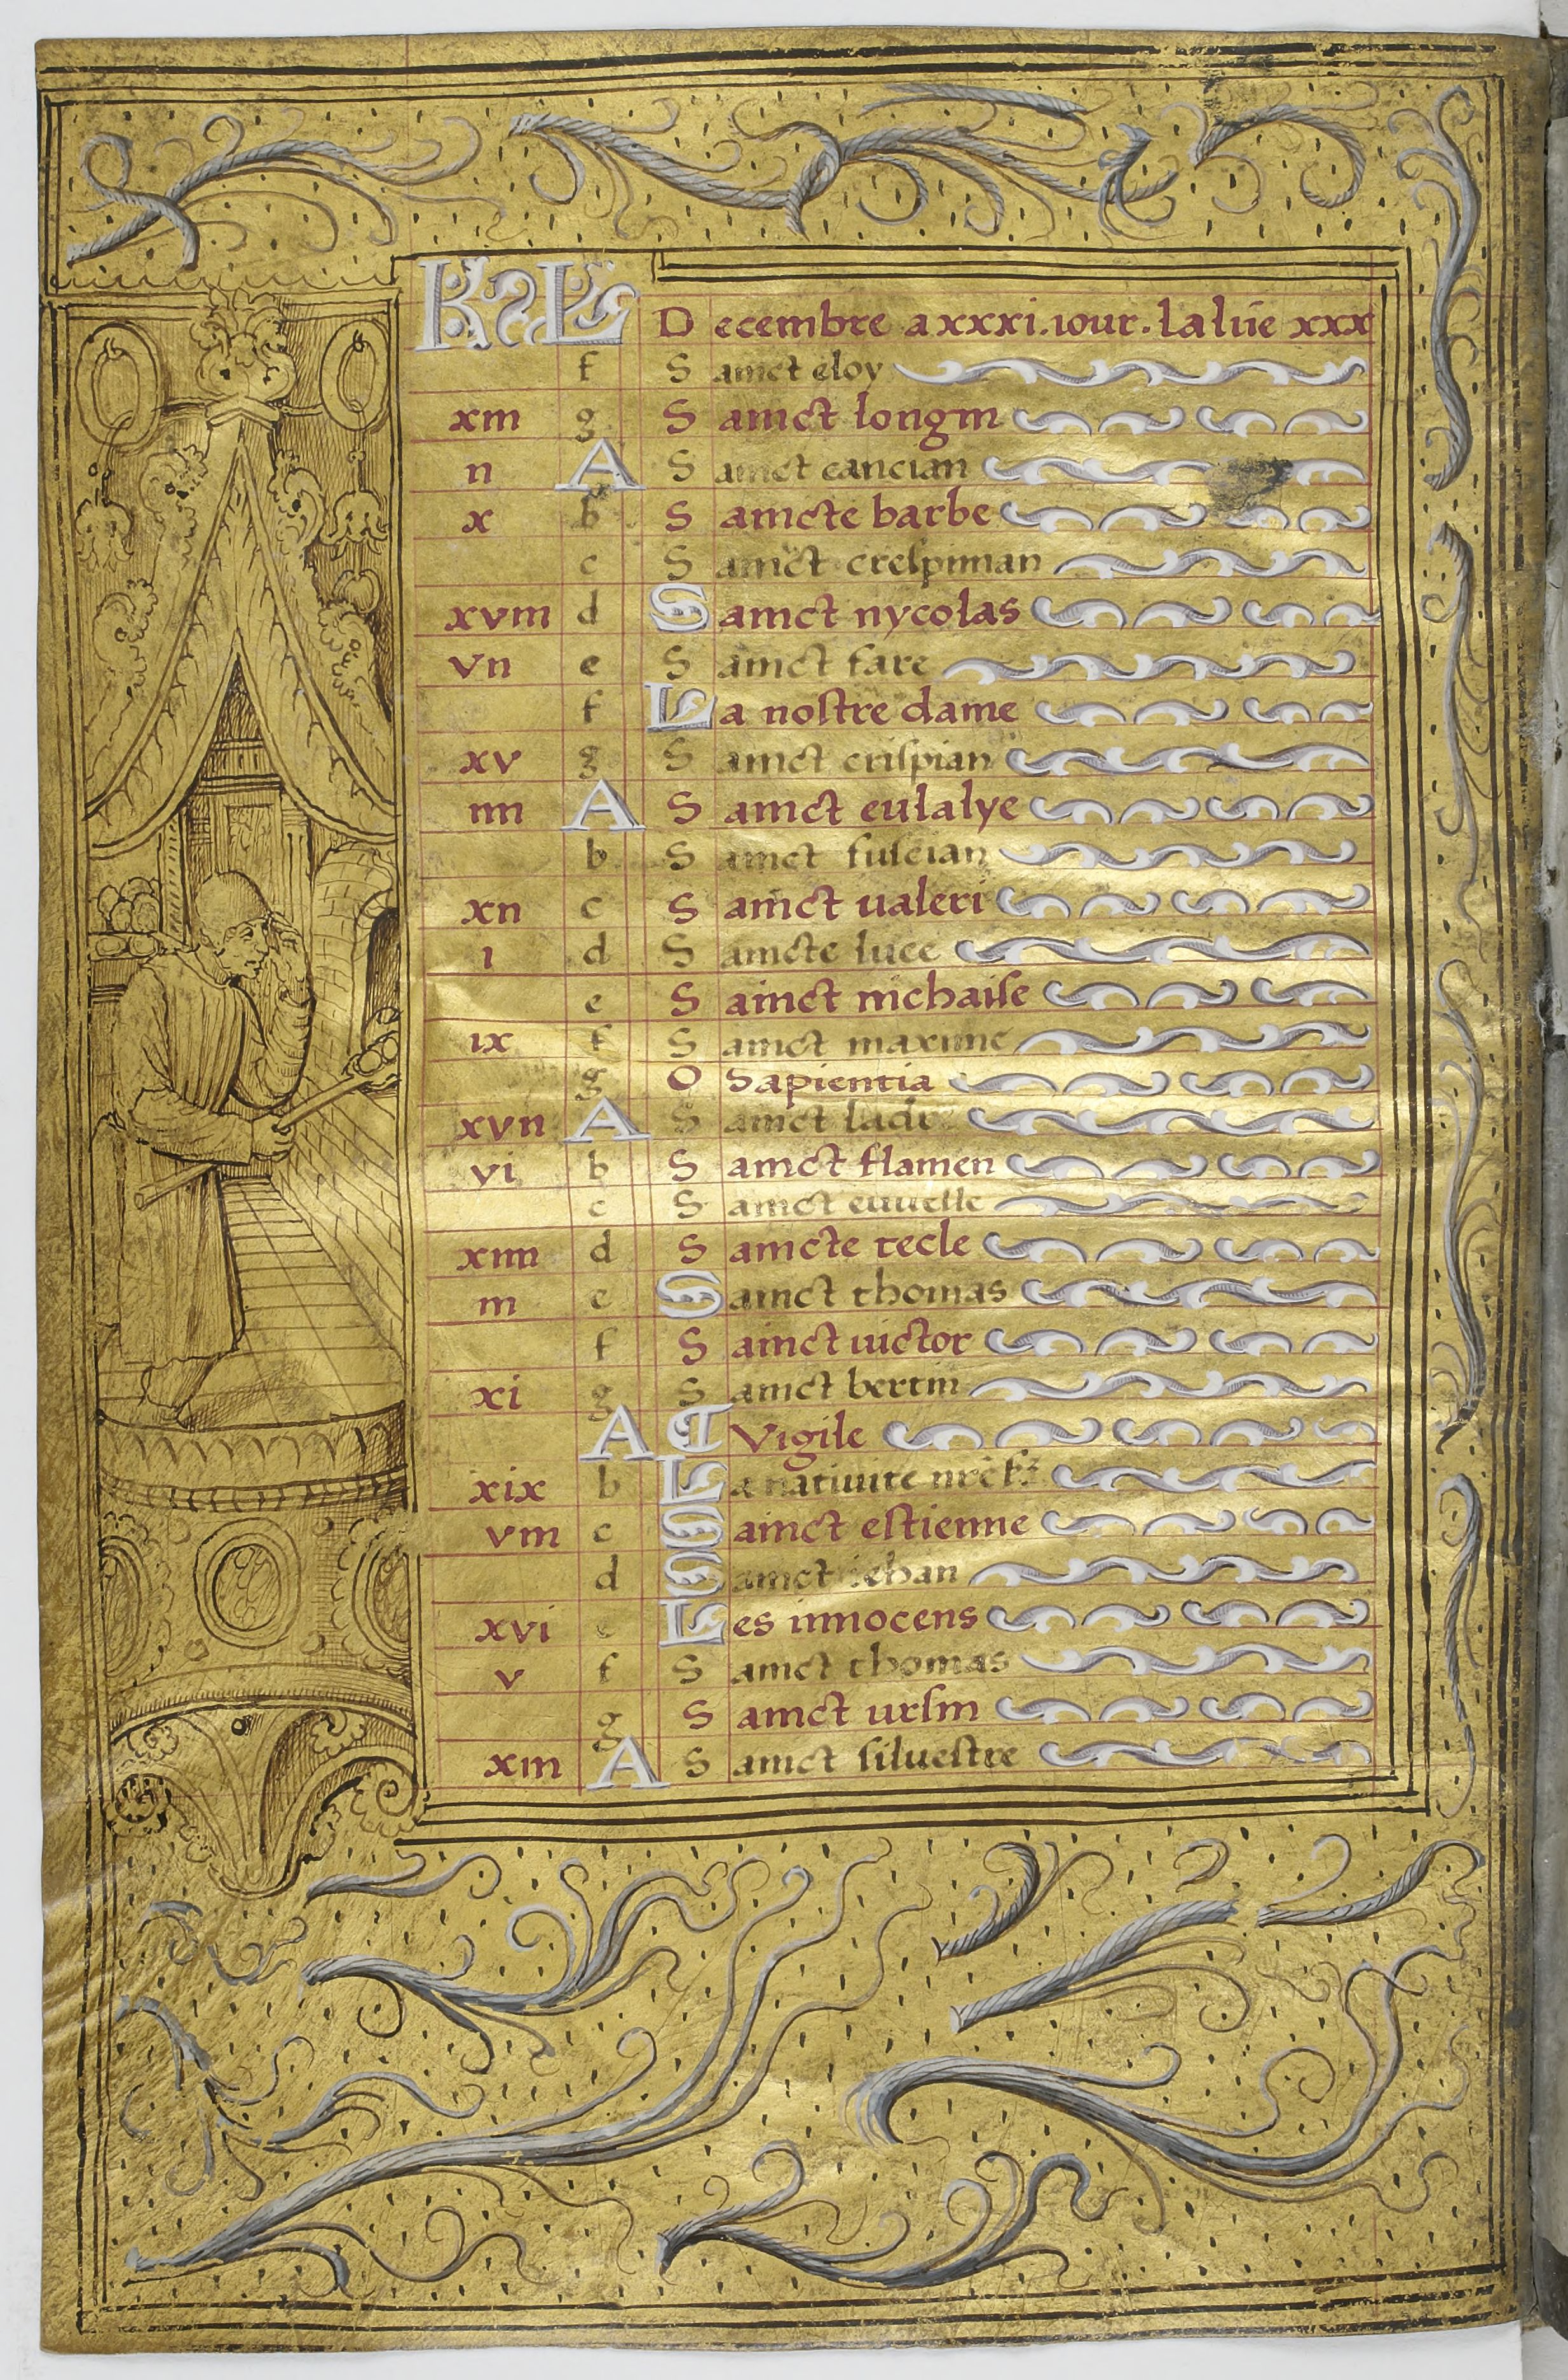 KL Decembre a xxxi. iour. la lūe xxx
f Sainct eloy
xiii g Sainct longin
ii A Sainct cancian
x b Saincte barbe
c Sainct crespinian
xviii d Sainct nycolas
vii e Sainct fare
f La nostre dame
xv g Sainct crispian
iiii A Sainct eulalye
b Sainct fuscian
xii c Sainct ualeri
i d Saincte luce
e Sainct nichaise
ix f Sainct maxime
g O Sapientia
xvii A Sainct
vi b Sainct flamen
c Sainct
xiiii d Saincte tecle
iii e Sainct thomas
f Sainct uictor
xi g Sainct bertin
A Vigile
xix b La natiuite nrē
viii c Sainct estienne
d Sainct iehan
xvi e Les innocens
v f Sainct thomas
g Sainct ursin
xiii A Sainct siluestre